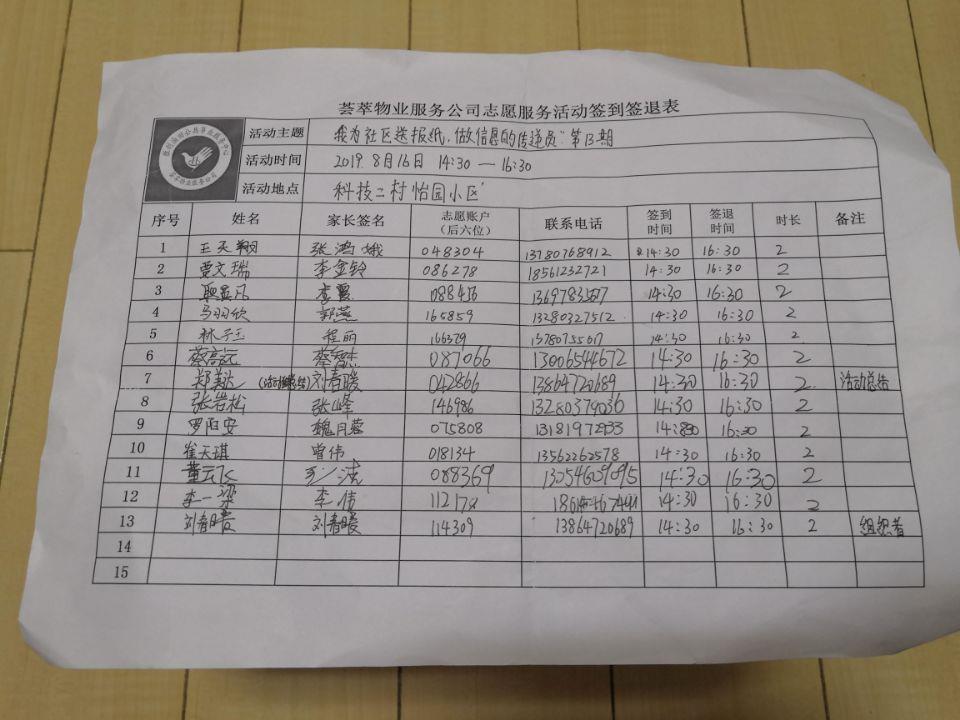 荟萃物业服务公司志愿服务活动签到签退表
活动主题 我为社区送报纸,做信息的传递员"第13期
活动时间 2019 8月16日 14:30 — 16:30
活动地点 科技二村怡园小区
序号 姓名 家长签名 志愿账户(后六位) 联系电话 签到时间 签退时间 时长 备注
1 王天翔 张鸿娥 048304 13780768912 14:30 16:30 2
2 贾文瑞 李金铃 086278 18561232721 14:30 16:30 2
3 李霞 14:30 16:30 2
4 马羽欣 郭燕 165859 13280327512 14:30 16:30 2
5 林子玉 程丽 14:30 16:30 2
6 蔡高远 蔡智杰 087066 13006544672 14:30 16:30 2
7 郑翔 刘春暖 042866 13864720689 14:30 16:30 2 活动总结
8 张岩松 张峰 146986 13280379036 14:30 16:30 2
9 罗阳安 魏月蓉 075808 16:30 2
10 崔天琪 曾伟 018134 13562262578 14:30 16:30 2
11 董云飞 088369 13054609695 14:30 16:30 2
12 李一梁 李伟 14:30 16:30 2
13 刘春暖 刘春暖 114309 13864720689 14:30 16:30 2 组织者
14
15